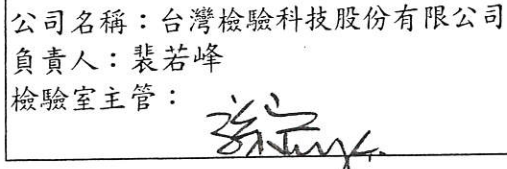 公司名稱：台灣檢驗科技股份有限公司
負責人：裴若峰
檢驗室主管：